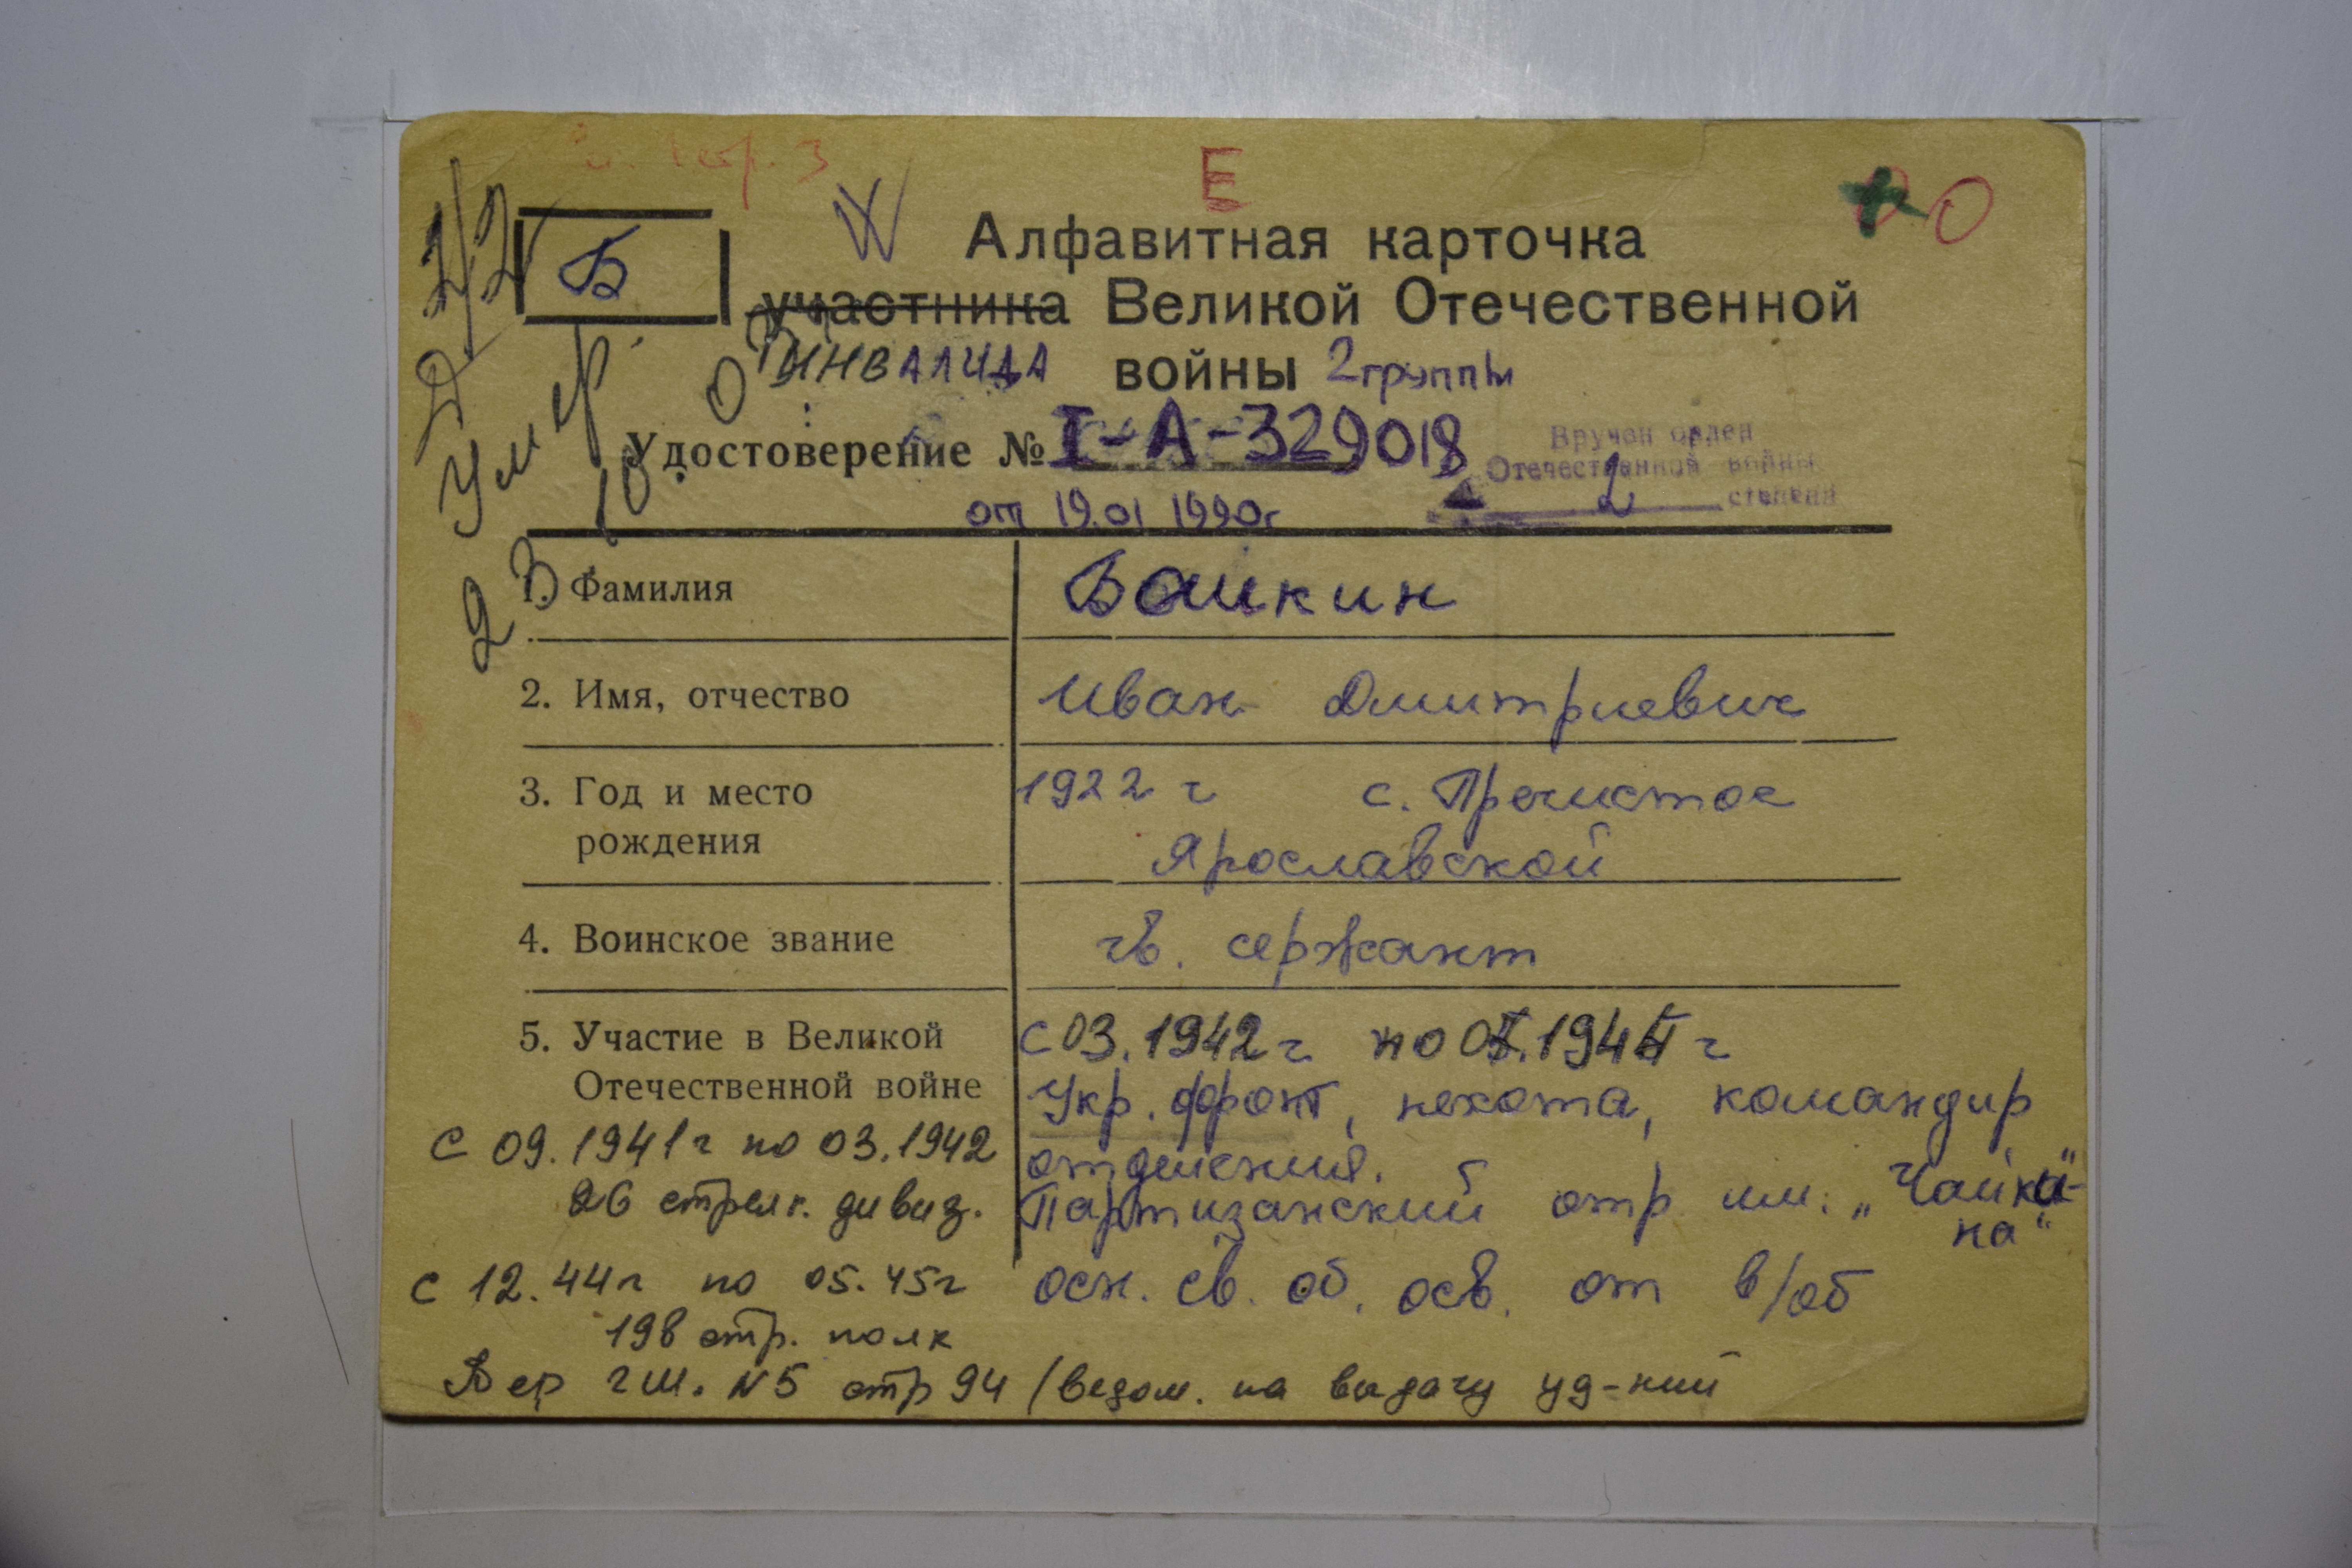 Е
Б
Алфавитная карточка
участника Великой Отечественной
инвалида войны 2 группы
Удостоверение № I-А-329018
от 19.01 1990г
Вручен орден
Отечественной войны
2 степени
Умер
1. Фамилия Башкин
2. Имя, отчество Иван Дмитриевич
3. Год и место 1922 г с. Пречистое
рождения Ярославской
4. Воинское звание гв. сержант
5. Участие в Великой с 03.1942 г по
Отечественной войне Укр. фронт, пехота, командир
отделения.
с 09.1941 г по 03.1942
26 стрелк. дивиз. Партизанский отр им. „Чайки-
на“
с 12.44 г по 05.45 г осн. св. об. осв. от в/об
198 стр. полк
стр 94 /ведом. на выдачу уд-ний